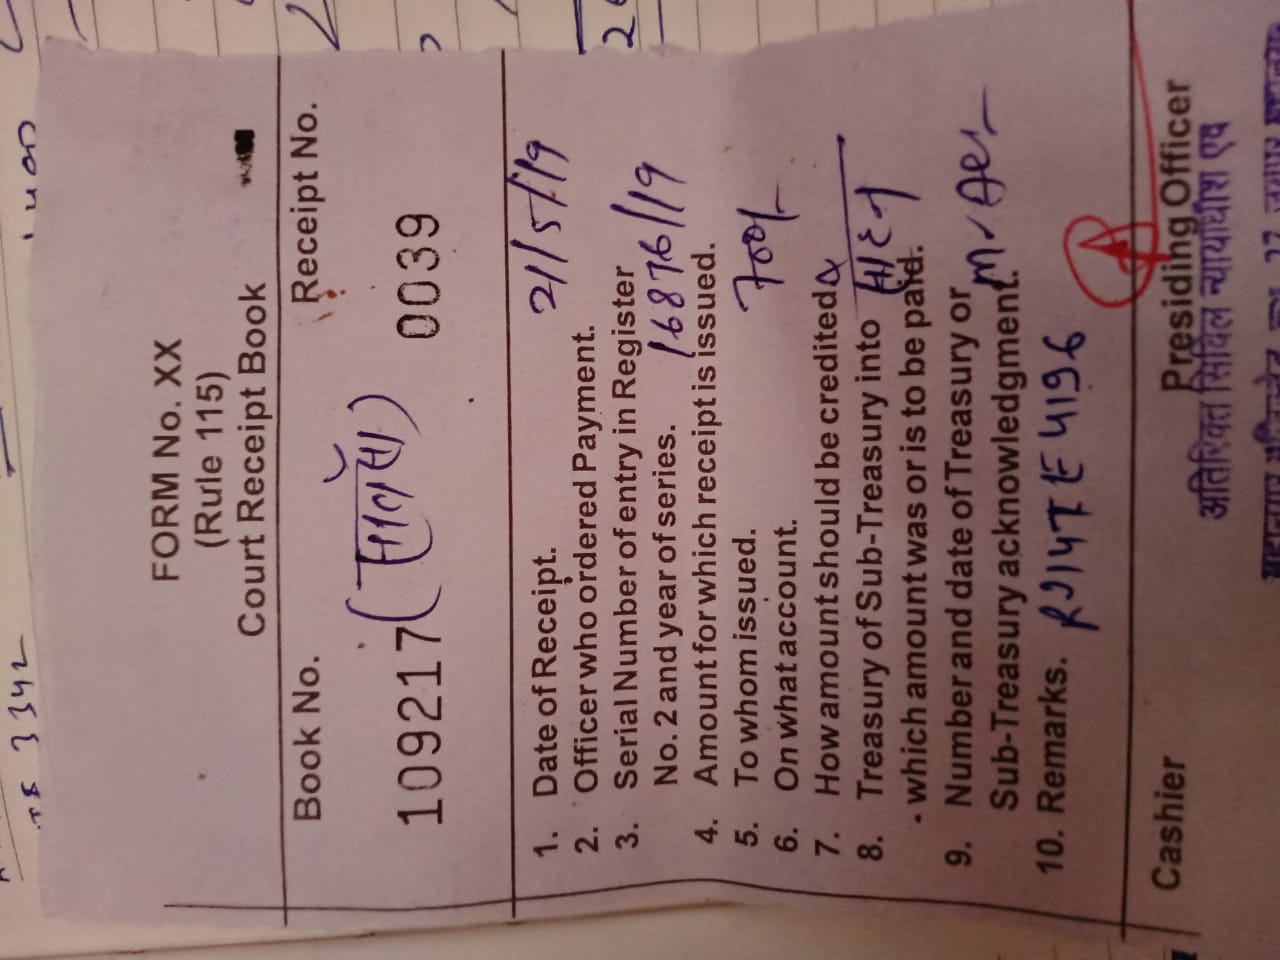 FORM No. XX
(Rule 115)
Court Receipt Book
Book No. Receipt No.
109217 0039
1. Date of Receipt. 21/5/19
2. Officer who ordered Payment.
3. Serial Number of entry in Register
No. 2 and year of series. 16876/19
4. Amount for which receipt is issued.
5. To whom issued. 700/-
6. On what account.
7. How amount should be credited
8. Treasury of Sub-Treasury into
which amount was or is to be paid.
9. Number and date of Treasury or
Sub-Treasury acknowledgment.
10. Remarks. RJ14TE4196
Cashier Presiding Officer
अतिरिक्त सिविल न्यायाधीश एवं